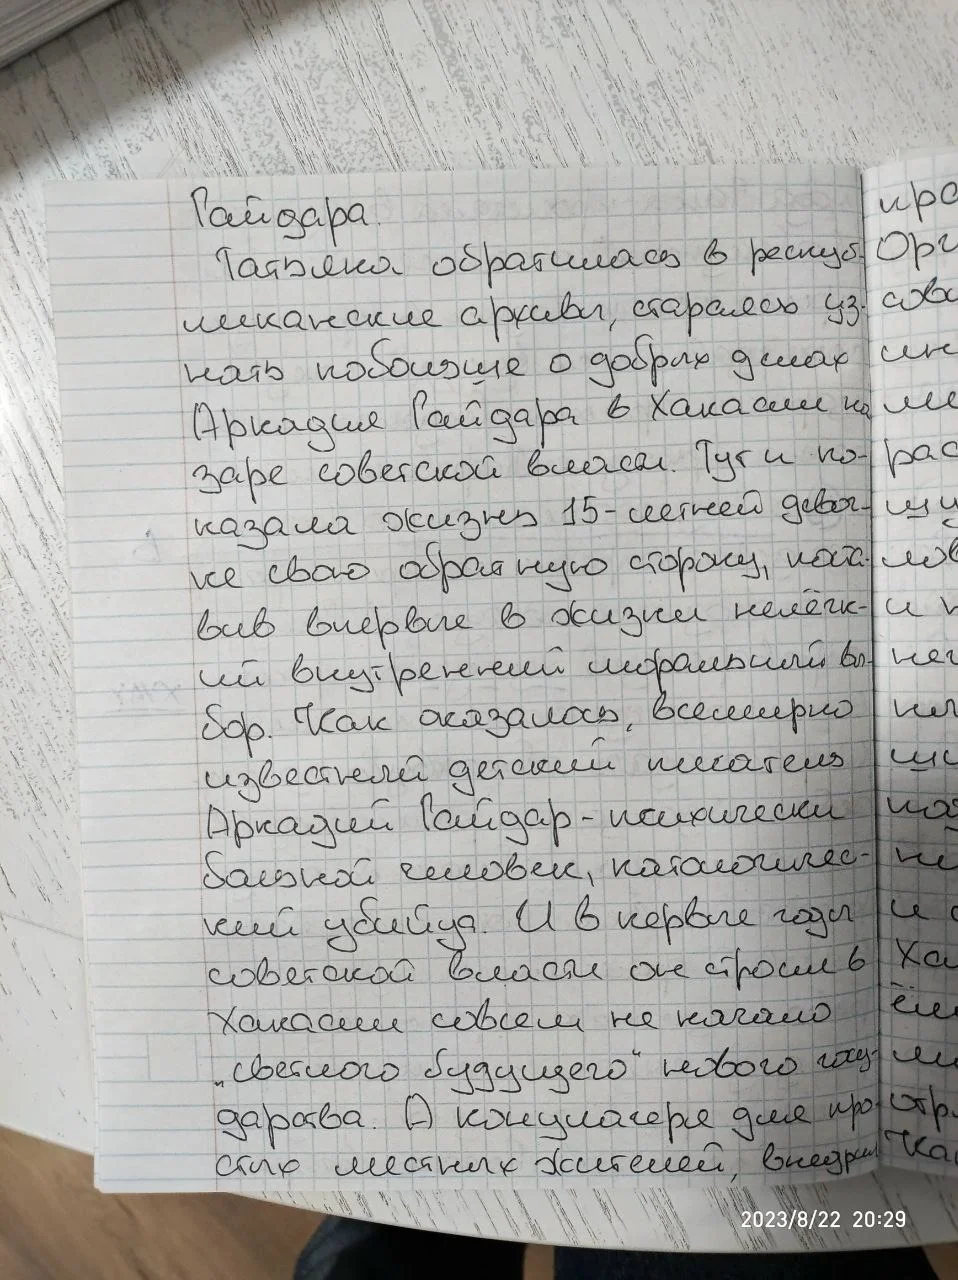 Гайдара.
Татьяна обратилась в респуб-
ликанские архивы, стараясь уз-
нать побольше о добрых делах
Аркадия Гайдара в Хакасии на
заре советской власти. Тут и по-
казала жизнь 15-летней девоч-
ке свою обратную сторону, поста-
вив впервые в жизни нелёгк-
ий внутренний моральный вы-
бор. Как оказалось, всемирно
известный детский писатель
Аркадий Гайдар - психически
больной человек, патологичес-
кий убийца. И в первые годы
советской власти он строил в
Хакасии совсем не начало
„светлого будущего" нового госу-
дарства. А концлагеря для про
стых местных жителей, внедрил
про
Орг
сов
ин
ме
рас
щи
лов
и н
нег
ни
щи
под
не
и с
Ха
ём
ли
отр
Ка
2023/8/22 20:29